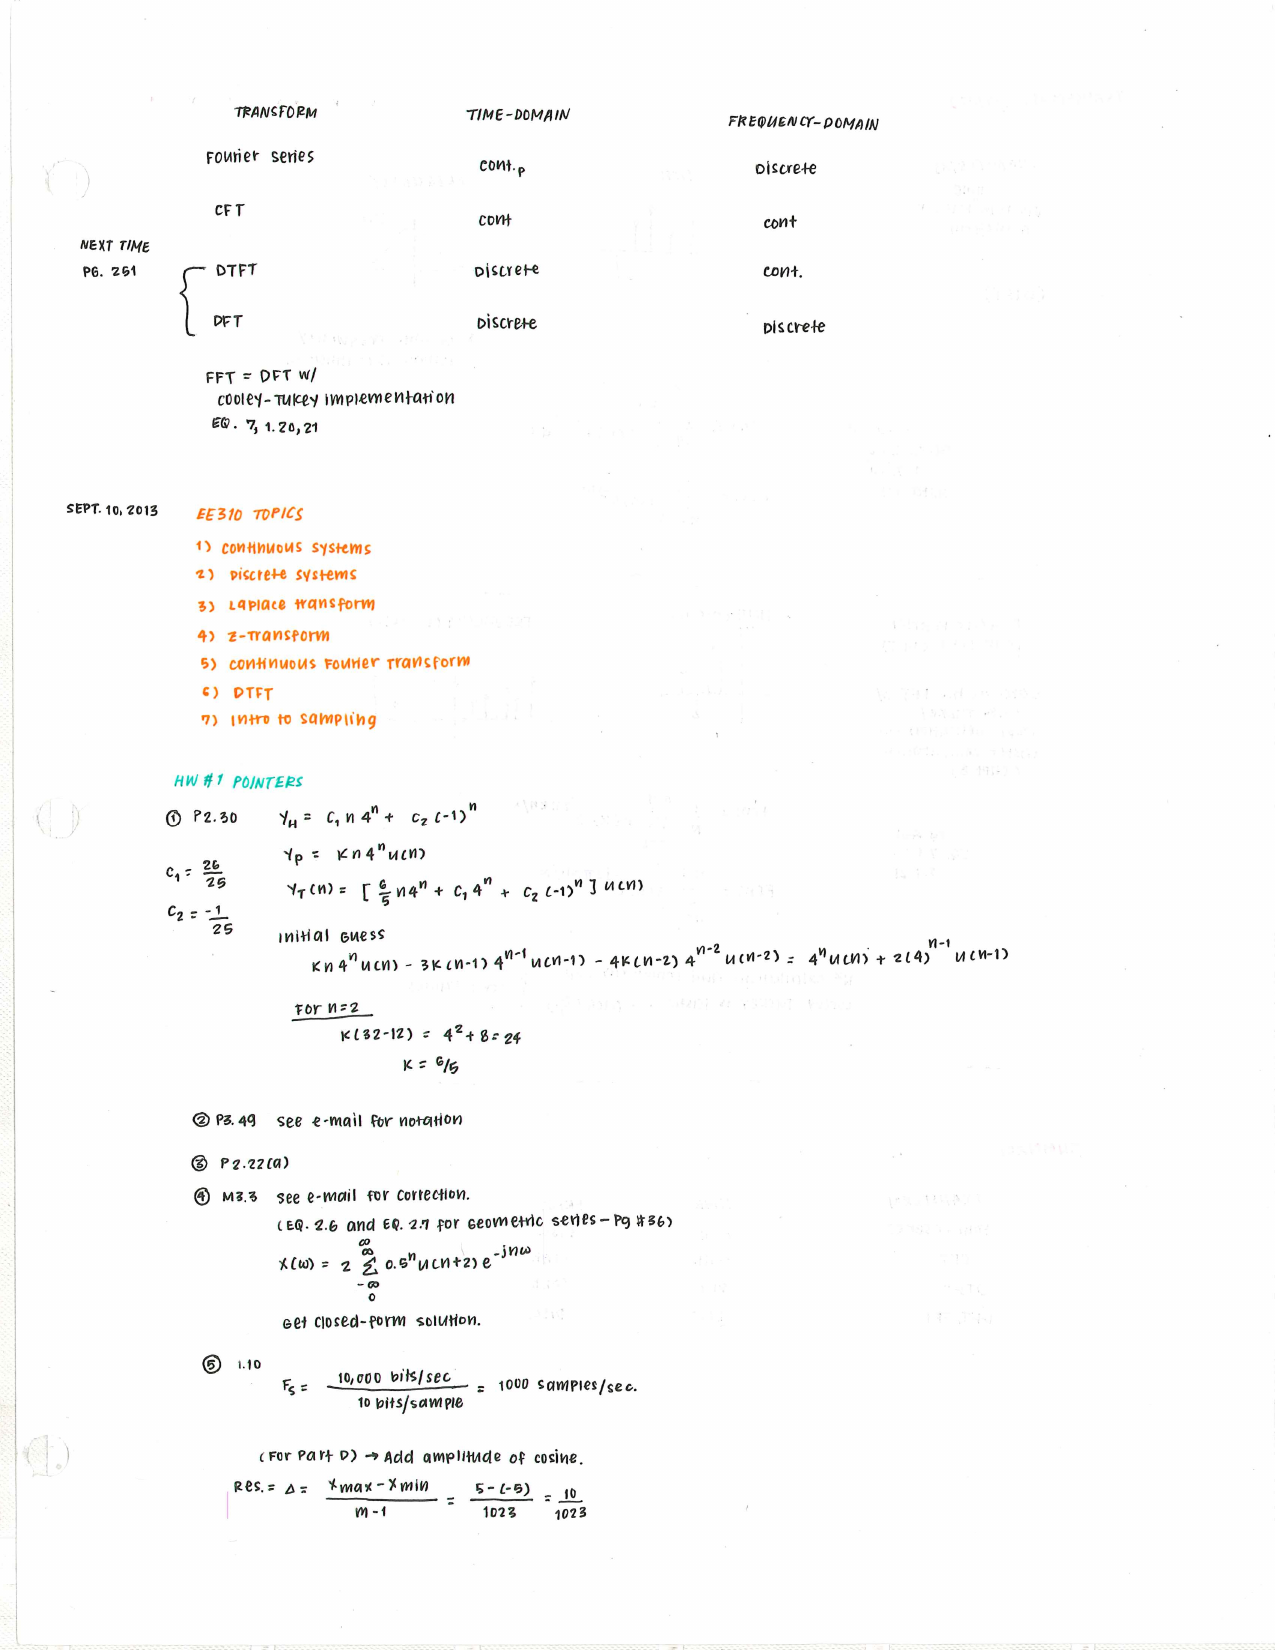 TRANSFORM TIME-DOMAIN FREQUENCY-DOMAIN
Fourier series cont.p Discrete
CFT cont cont
NEXT TIME
PG. 251 { DTFT Discrete cont.
DFT Discrete Discrete
FFT = DFT w/
Cooley-Tukey implementation
EQ. 7, 1.20, 21
SEPT. 10, 2013 EE310 TOPICS
1) Continuous systems
2) Discrete systems
3) Laplace transform
4) Z-Transform
5) Continuous Fourier Transform
6) DTFT
7) Intro to sampling
HW #1 POINTERS
① P2.30 Y_H = C₁ n 4ⁿ + C₂ (-1)ⁿ
Y_P = K n 4ⁿ u(n)
C₁ = 26/25
Y_T(n) = [ 6/5 n4ⁿ + C₁ 4ⁿ + C₂ (-1)ⁿ ] u(n)
C₂ = -1/25
Initial Guess
Kn 4ⁿ u(n) - 3K (n-1) 4ⁿ⁻¹ u(n-1) - 4K(n-2) 4ⁿ⁻² u(n-2) = 4ⁿ u(n) + 2(4)ⁿ⁻¹ u(n-1)
For n=2
K(32-12) = 4² + 8 = 24
K = 6/5
② P3.49 See e-mail for notation
③ P2.22(a)
④ M3.3 See e-mail for correction.
(EQ. 2.6 and EQ. 2.7 for Geometric series - Pg #36)
∞
X(ω) = 2 ∞Σ-∞ 0.5ⁿ u(n+2) e^-jnω
0
Get closed-form solution.
⑤ 1.10
Fs = 10,000 bits/sec / 10 bits/sample = 1000 samples/sec.
(For Part D) → Add amplitude of cosine.
Res. = Δ = Xmax - Xmin / m-1 = 5-(-5) / 1023 = 10 / 1023